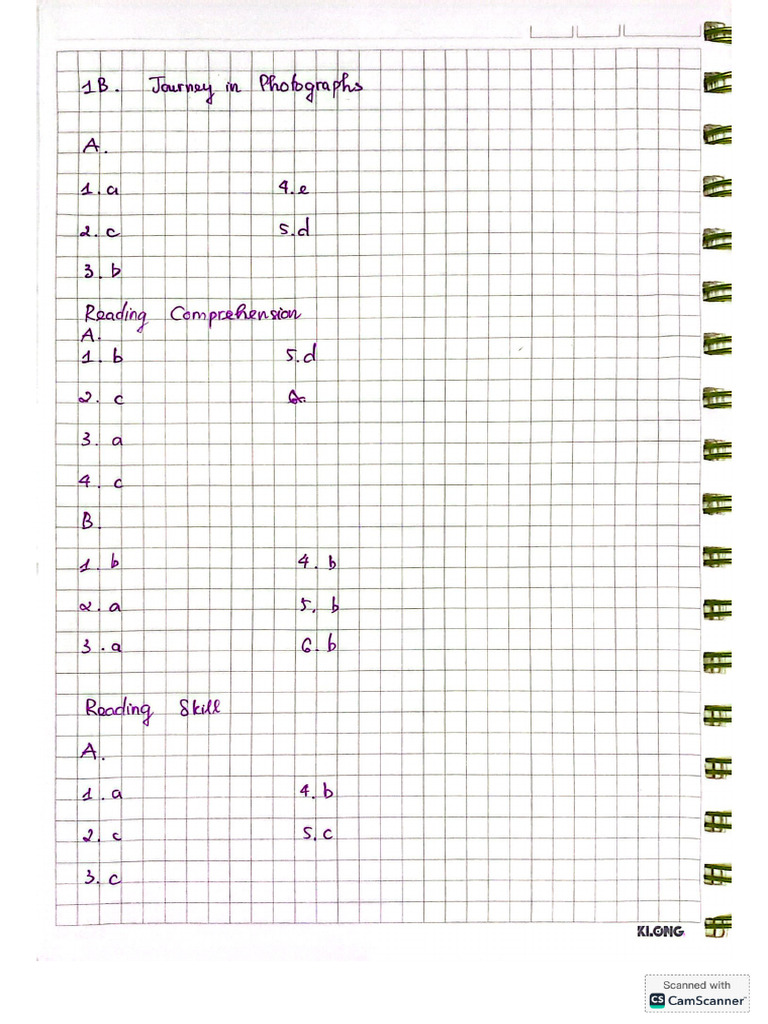 1B. Journey in Photographs
A.
1. a 4. e
2. c 5. d
3. b
Reading Comprehension
A.
1. b 5. d
2. c
3. a
4. c
B.
1. b 4. b
2. a 5. b
3. a 6. b
Reading Skill
A.
1. a 4. b
2. c 5. c
3. c
KLONG
Scanned with
CS CamScanner